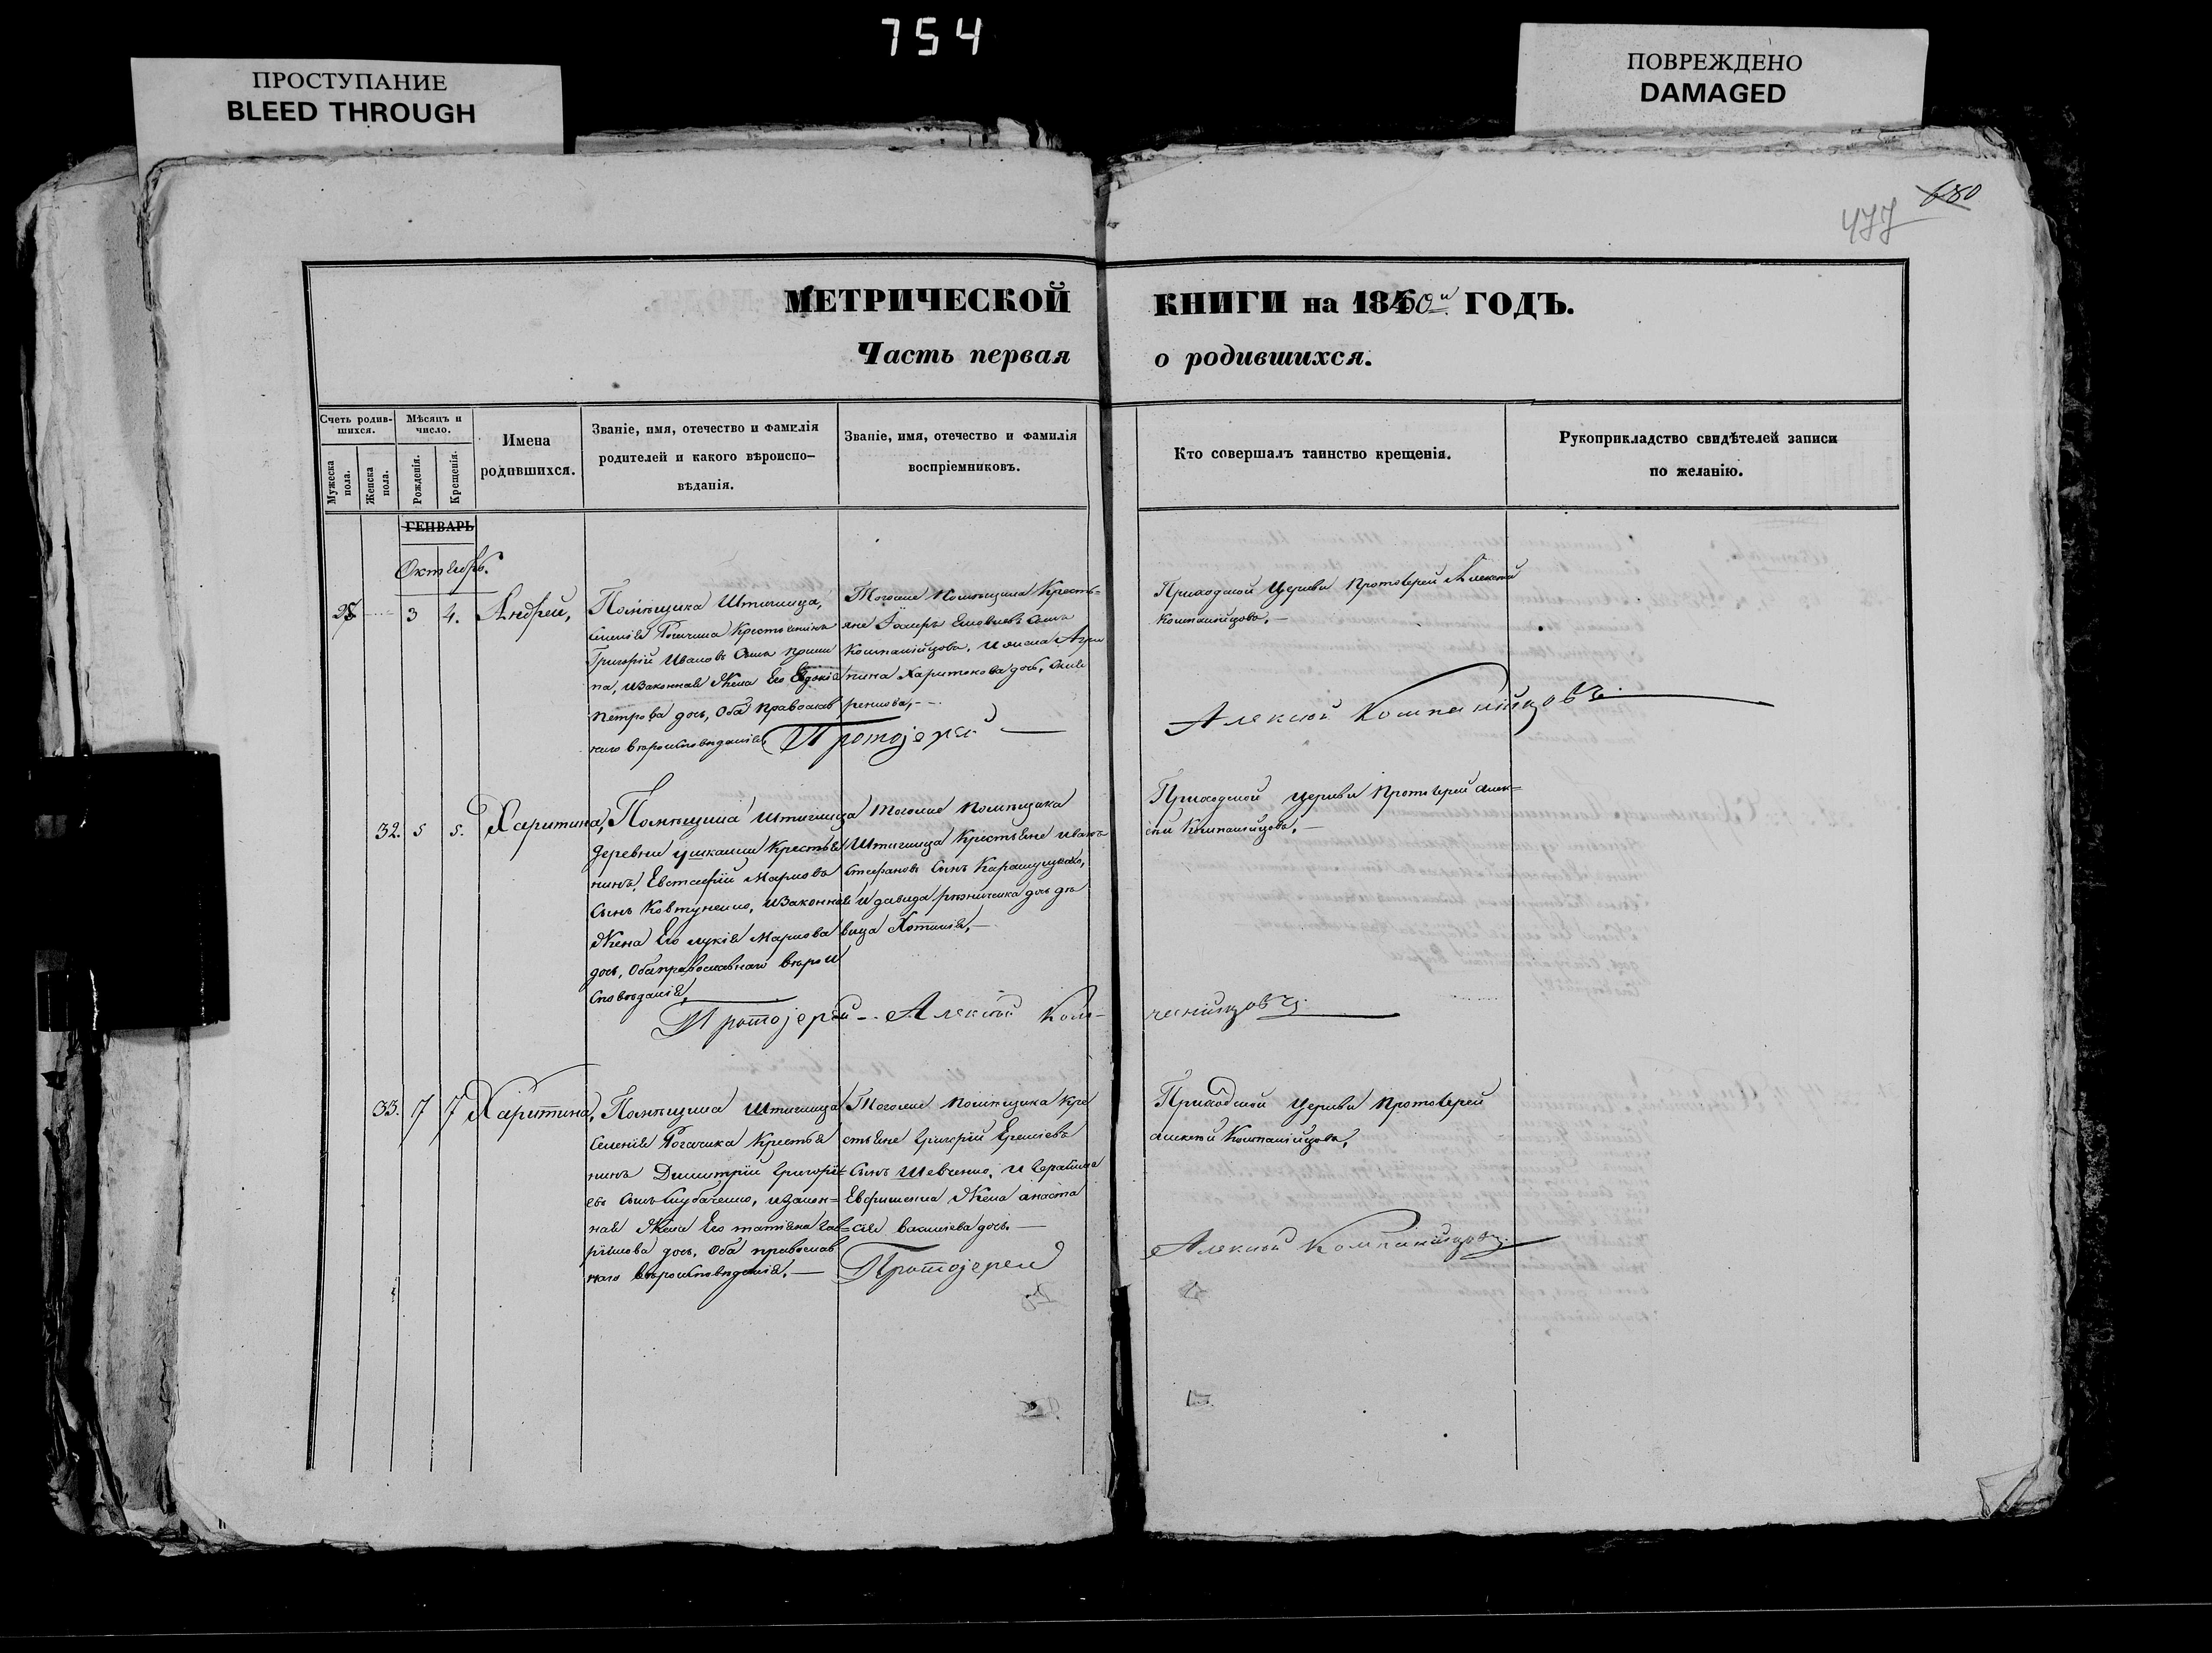 754
ПРОСТУПАНИЕ
BLEED THROUGH
ПОВРЕЖДЕНО
DAMAGED
680
477
МЕТРИЧЕСКОЙ КНИГИ на 1850й ГОДЪ.
Часть первая о родившихся.
Счетъ родив-
шихся.
Мужеска пола.
Женска пола.
Мѣсяцъ и
число.
Рожденія.
Крещенія.
Имена
родившихся.
Званіе, имя, отечество и фамилія
родителей и какого вѣроиспо-
вѣданія.
Званіе, имя, отечество и фамилія
воспріемниковъ.
Кто совершалъ таинство крещенія.
Рукоприкладство свидѣтелей записи
по желанію.
ГЕНВАРЬ
Октябрь.
28 3 4. Андрей,
Помѣщика Штиглица,
селенія Рогачика Крестьянинъ
Григорій Ивановъ Сынъ
па, изаконная Жена Его Евдокія
Петрова дочь, Оба Православ
наго вѣроисповѣданія,
Тогоже Помѣщика Кресть=
яне
Компанійцовъ, и
пина Харитонова дочь,
Приходской Церкви Протоіерей Алексѣй
Компанійцовъ,
Протоіерей Алексѣй Компанійцовъ
32. 5 5. Харитина,
Помѣщика Штиглица
деревни Ушкалки Крестья
нинъ, Евстафій Марковъ
Сынъ Ковтуненко, изаконная
Жена Его Лукія Маркова
дочь, Оба православнаго вѣрои
сповѣданія,
Тогоже Помѣщика
Штиглица Крестьяне Иванъ
Стефановъ Сынъ
и Давида Рѣзничика дочь дѣ
вица Хотинія,
Приходской Церкви Протоіерей Алек=
сѣй Компанійцовъ,
Протоіерей Алексѣй Ком-
панійцовъ
33. 7 7 Харитина,
Помѣщика Штиглица
Селенія Рогачика Крестья
нинъ Димитрій Григорі=
евъ Сынъ Скубаченко, изакон=
ная Жена Его Татіана Гав=
ріилова дочь, Оба православ
наго вѣроисповѣданія,
Тогоже Помѣщика Кре
стьяне Григорій Еремѣевъ
Сынъ Шевченко, и Герасима
Евфименка Жена Анаста
сія Василіева дочь.
Приходской Церкви Протоіерей
Алексѣй Компанійцовъ,
Протоіерей Алексѣй Компанійцовъ